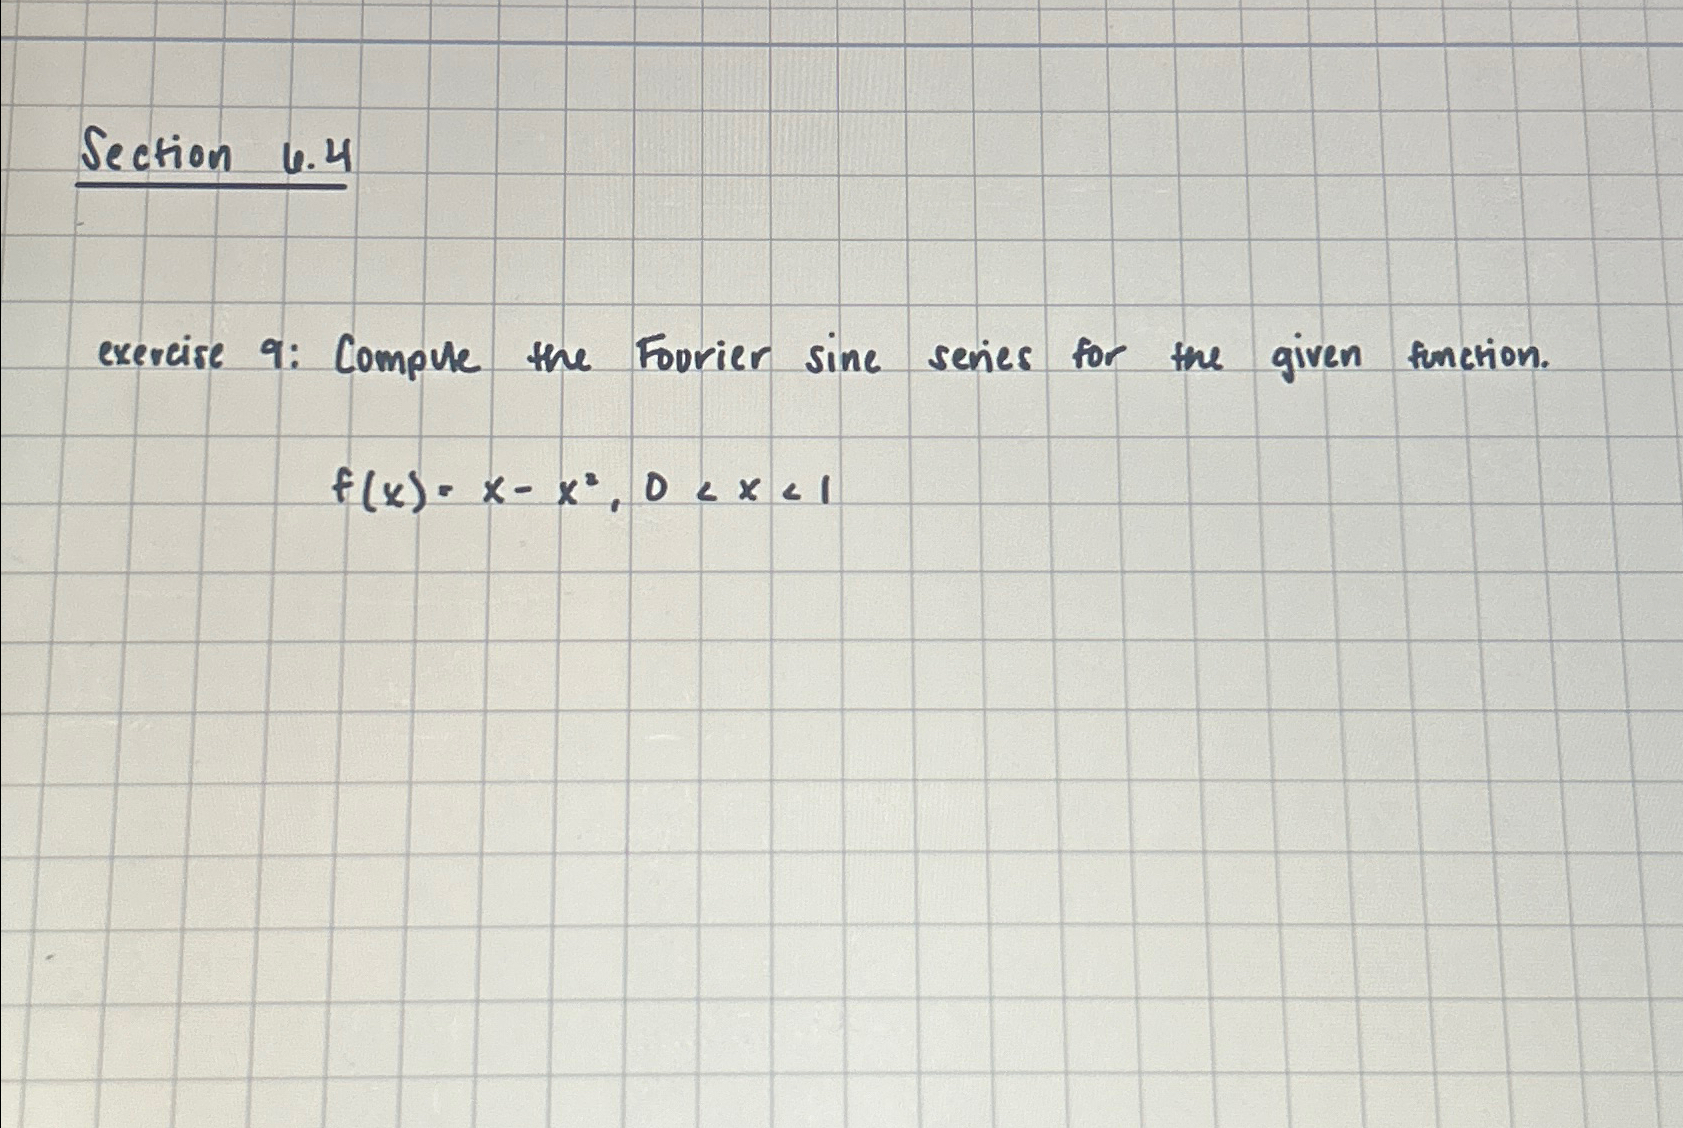 Section 6.4
exercise 9: Compute the Fourier sine series for the given function.
f(x) = x - x², 0 < x < 1